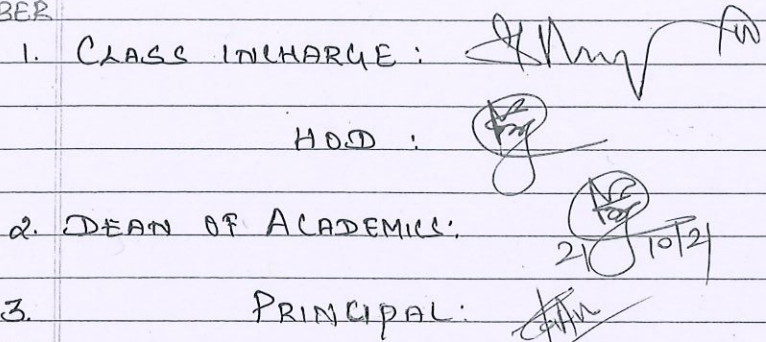 BER
1. CLASS INCHARGE :
HOD :
2. DEAN OF ACADEMICS:
21/10/21
3. PRINCIPAL: